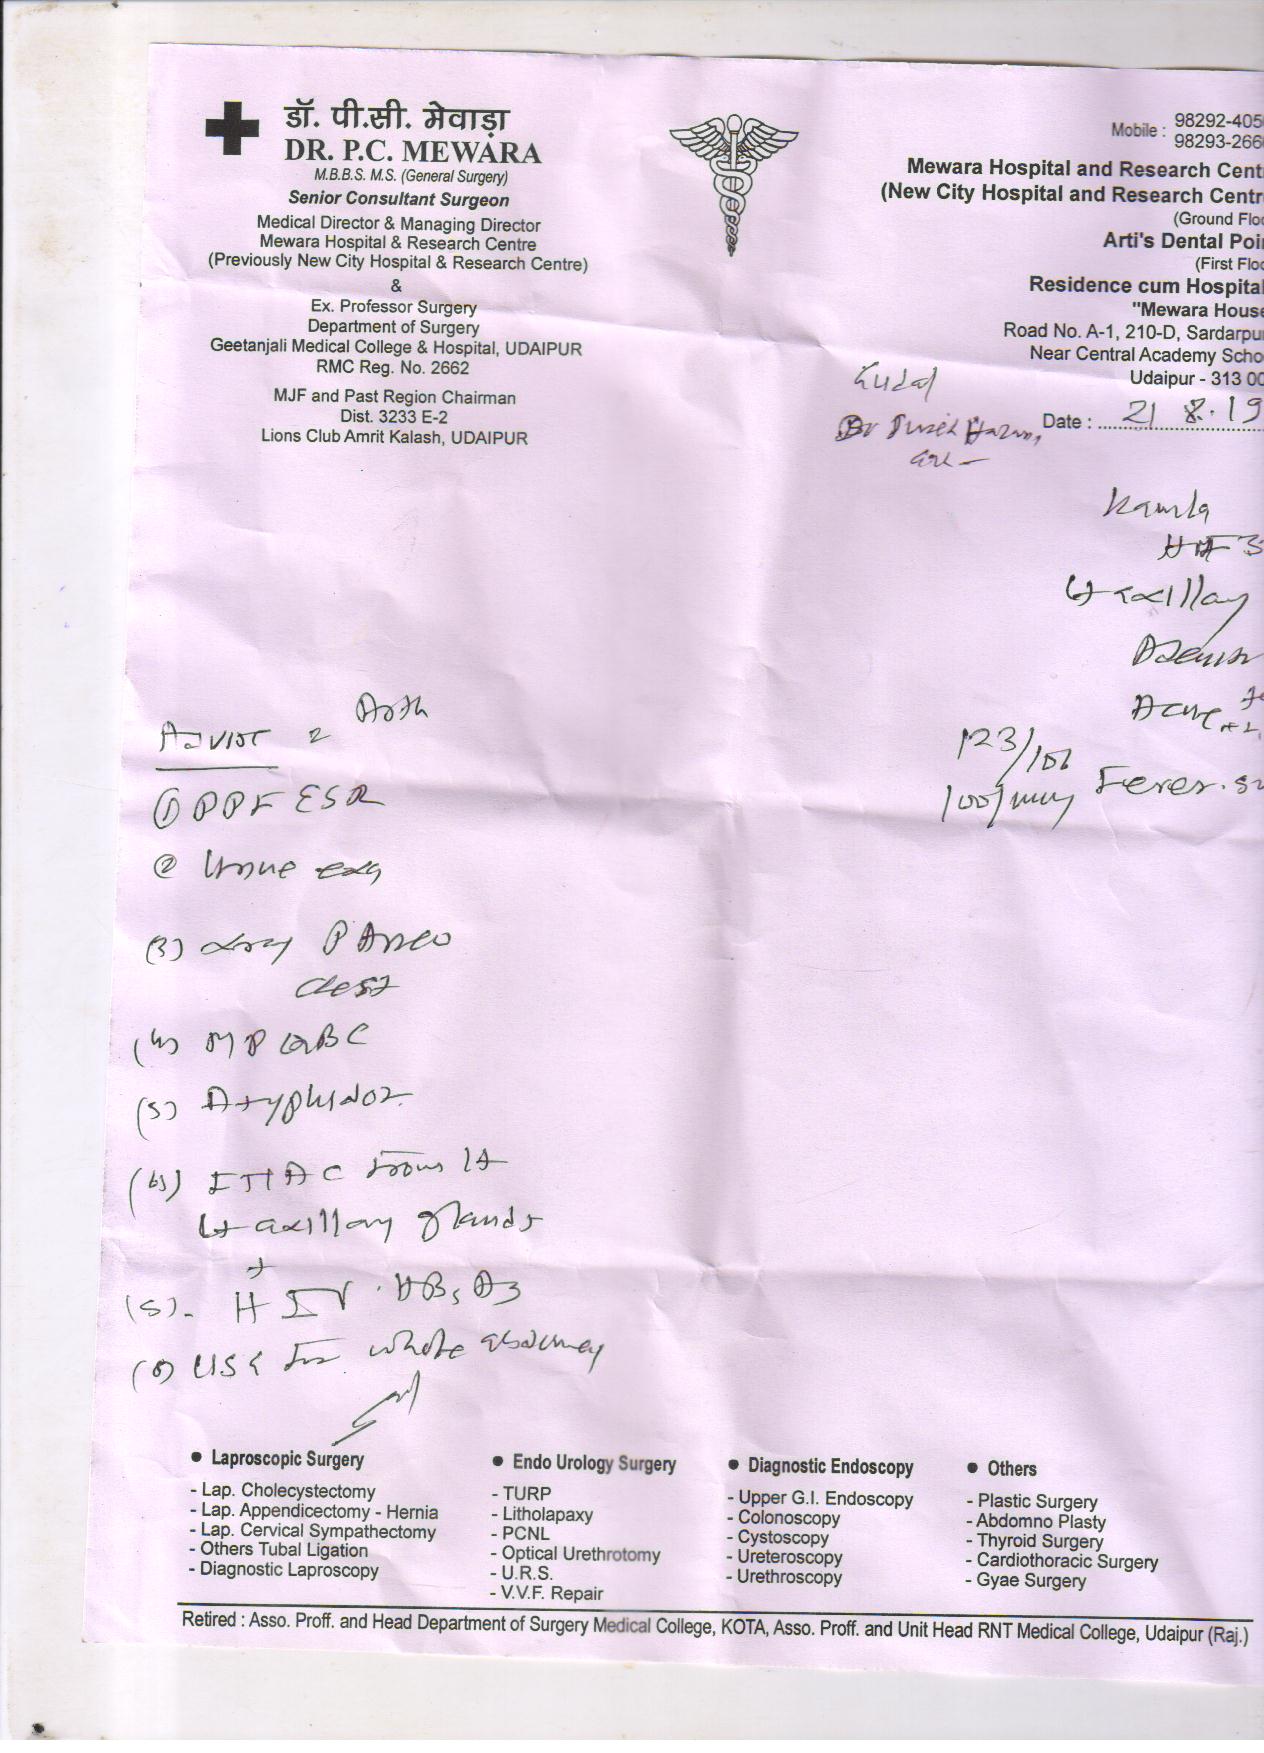 डॉ. पी.सी. मेवाड़ा
DR. P.C. MEWARA
M.B.B.S. M.S. (General Surgery)
Senior Consultant Surgeon
Medical Director & Managing Director
Mewara Hospital & Research Centre
(Previously New City Hospital & Research Centre)
&
Ex. Professor Surgery
Department of Surgery
Geetanjali Medical College & Hospital, UDAIPUR
RMC Reg. No. 2662
MJF and Past Region Chairman
Dist. 3233 E-2
Lions Club Amrit Kalash, UDAIPUR
Mobile : 98292-405
98293-266
Mewara Hospital and Research Cent
(New City Hospital and Research Centr
(Ground Floo
Arti's Dental Poi
(First Floo
Residence cum Hospital
"Mewara House
Road No. A-1, 210-D, Sardarpu
Near Central Academy Scho
Udaipur - 313 00
Date : 21 8.19
Kamla
Lt axillary
Acne
123/
100/
Fever
Advise
(1) ESR
(2) Urine
(3) Xray
Chest
(4) MP QBC
(5) 
(6) from Lt
Lt axillary glands
(5). HIV
(8) USG for whole
● Laproscopic Surgery
- Lap. Cholecystectomy
- Lap. Appendicectomy - Hernia
- Lap. Cervical Sympathectomy
- Others Tubal Ligation
- Diagnostic Laproscopy
● Endo Urology Surgery
- TURP
- Litholapaxy
- PCNL
- Optical Urethrotomy
- U.R.S.
- V.V.F. Repair
● Diagnostic Endoscopy
- Upper G.I. Endoscopy
- Colonoscopy
- Cystoscopy
- Ureteroscopy
- Urethroscopy
● Others
- Plastic Surgery
- Abdomno Plasty
- Thyroid Surgery
- Cardiothoracic Surgery
- Gyae Surgery
Retired : Asso. Proff. and Head Department of Surgery Medical College, KOTA, Asso. Proff. and Unit Head RNT Medical College, Udaipur (Raj.)